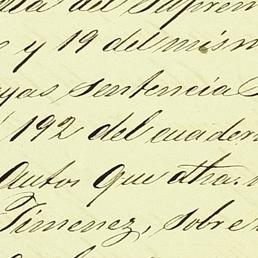 del Suprem
y 19 del mism
yas, sentencia
192 del cuader
Autos que
Timenez, sobre